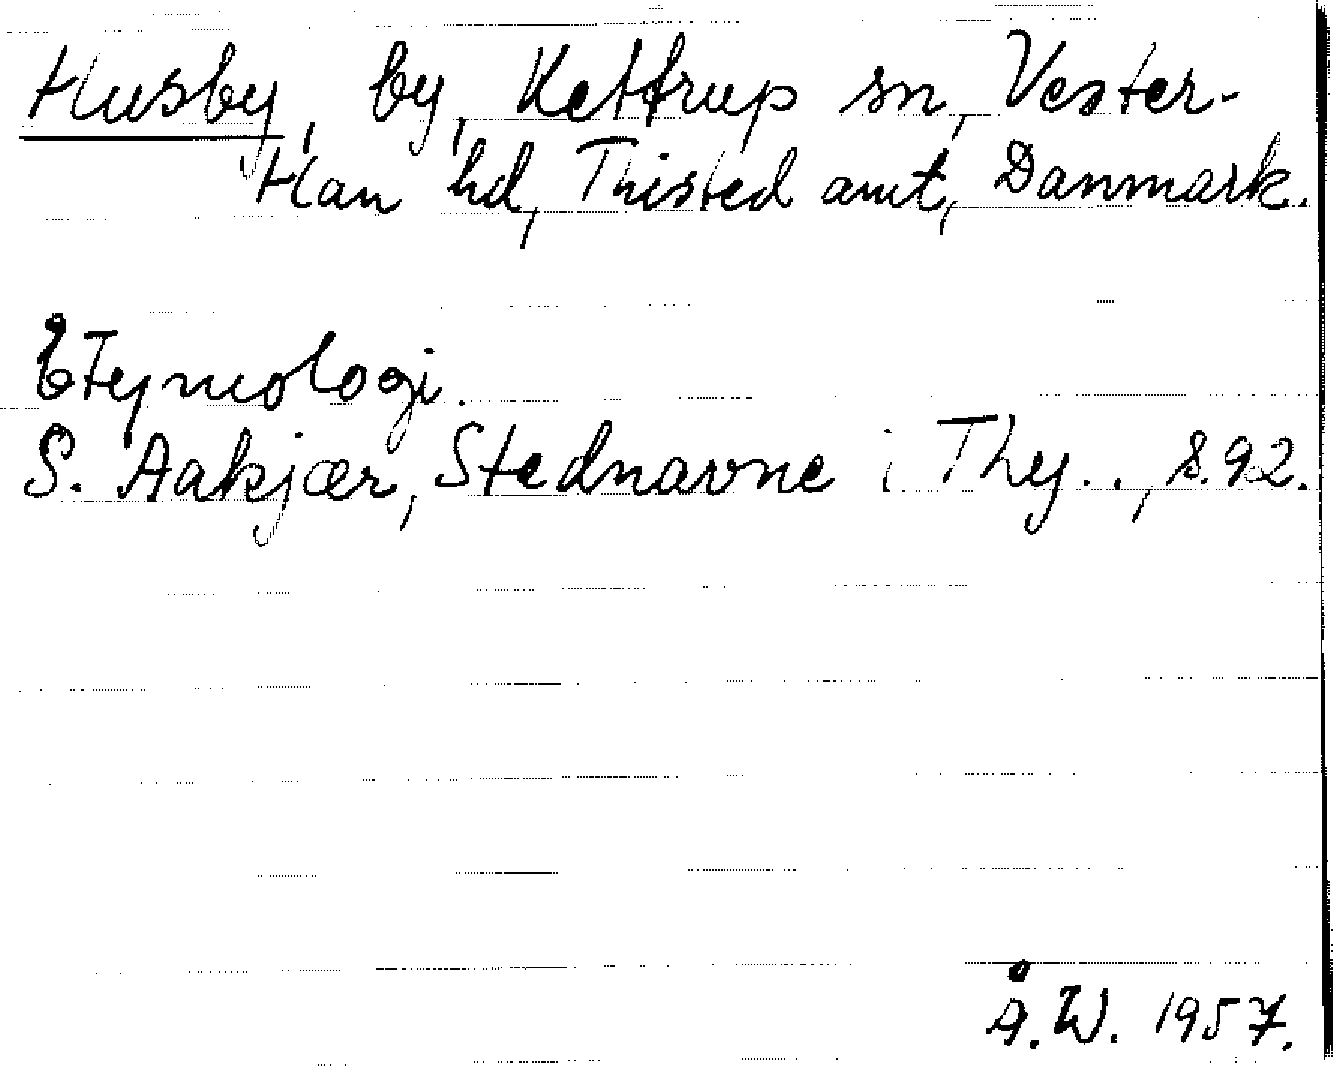 Husby, by, Kettrup sn, Vester-
Han hd, Thisted amt, Danmark.
Etymologi.
S. Aakjær, Stednavne i Thy . . , s. 92.
Å. W. 1957.